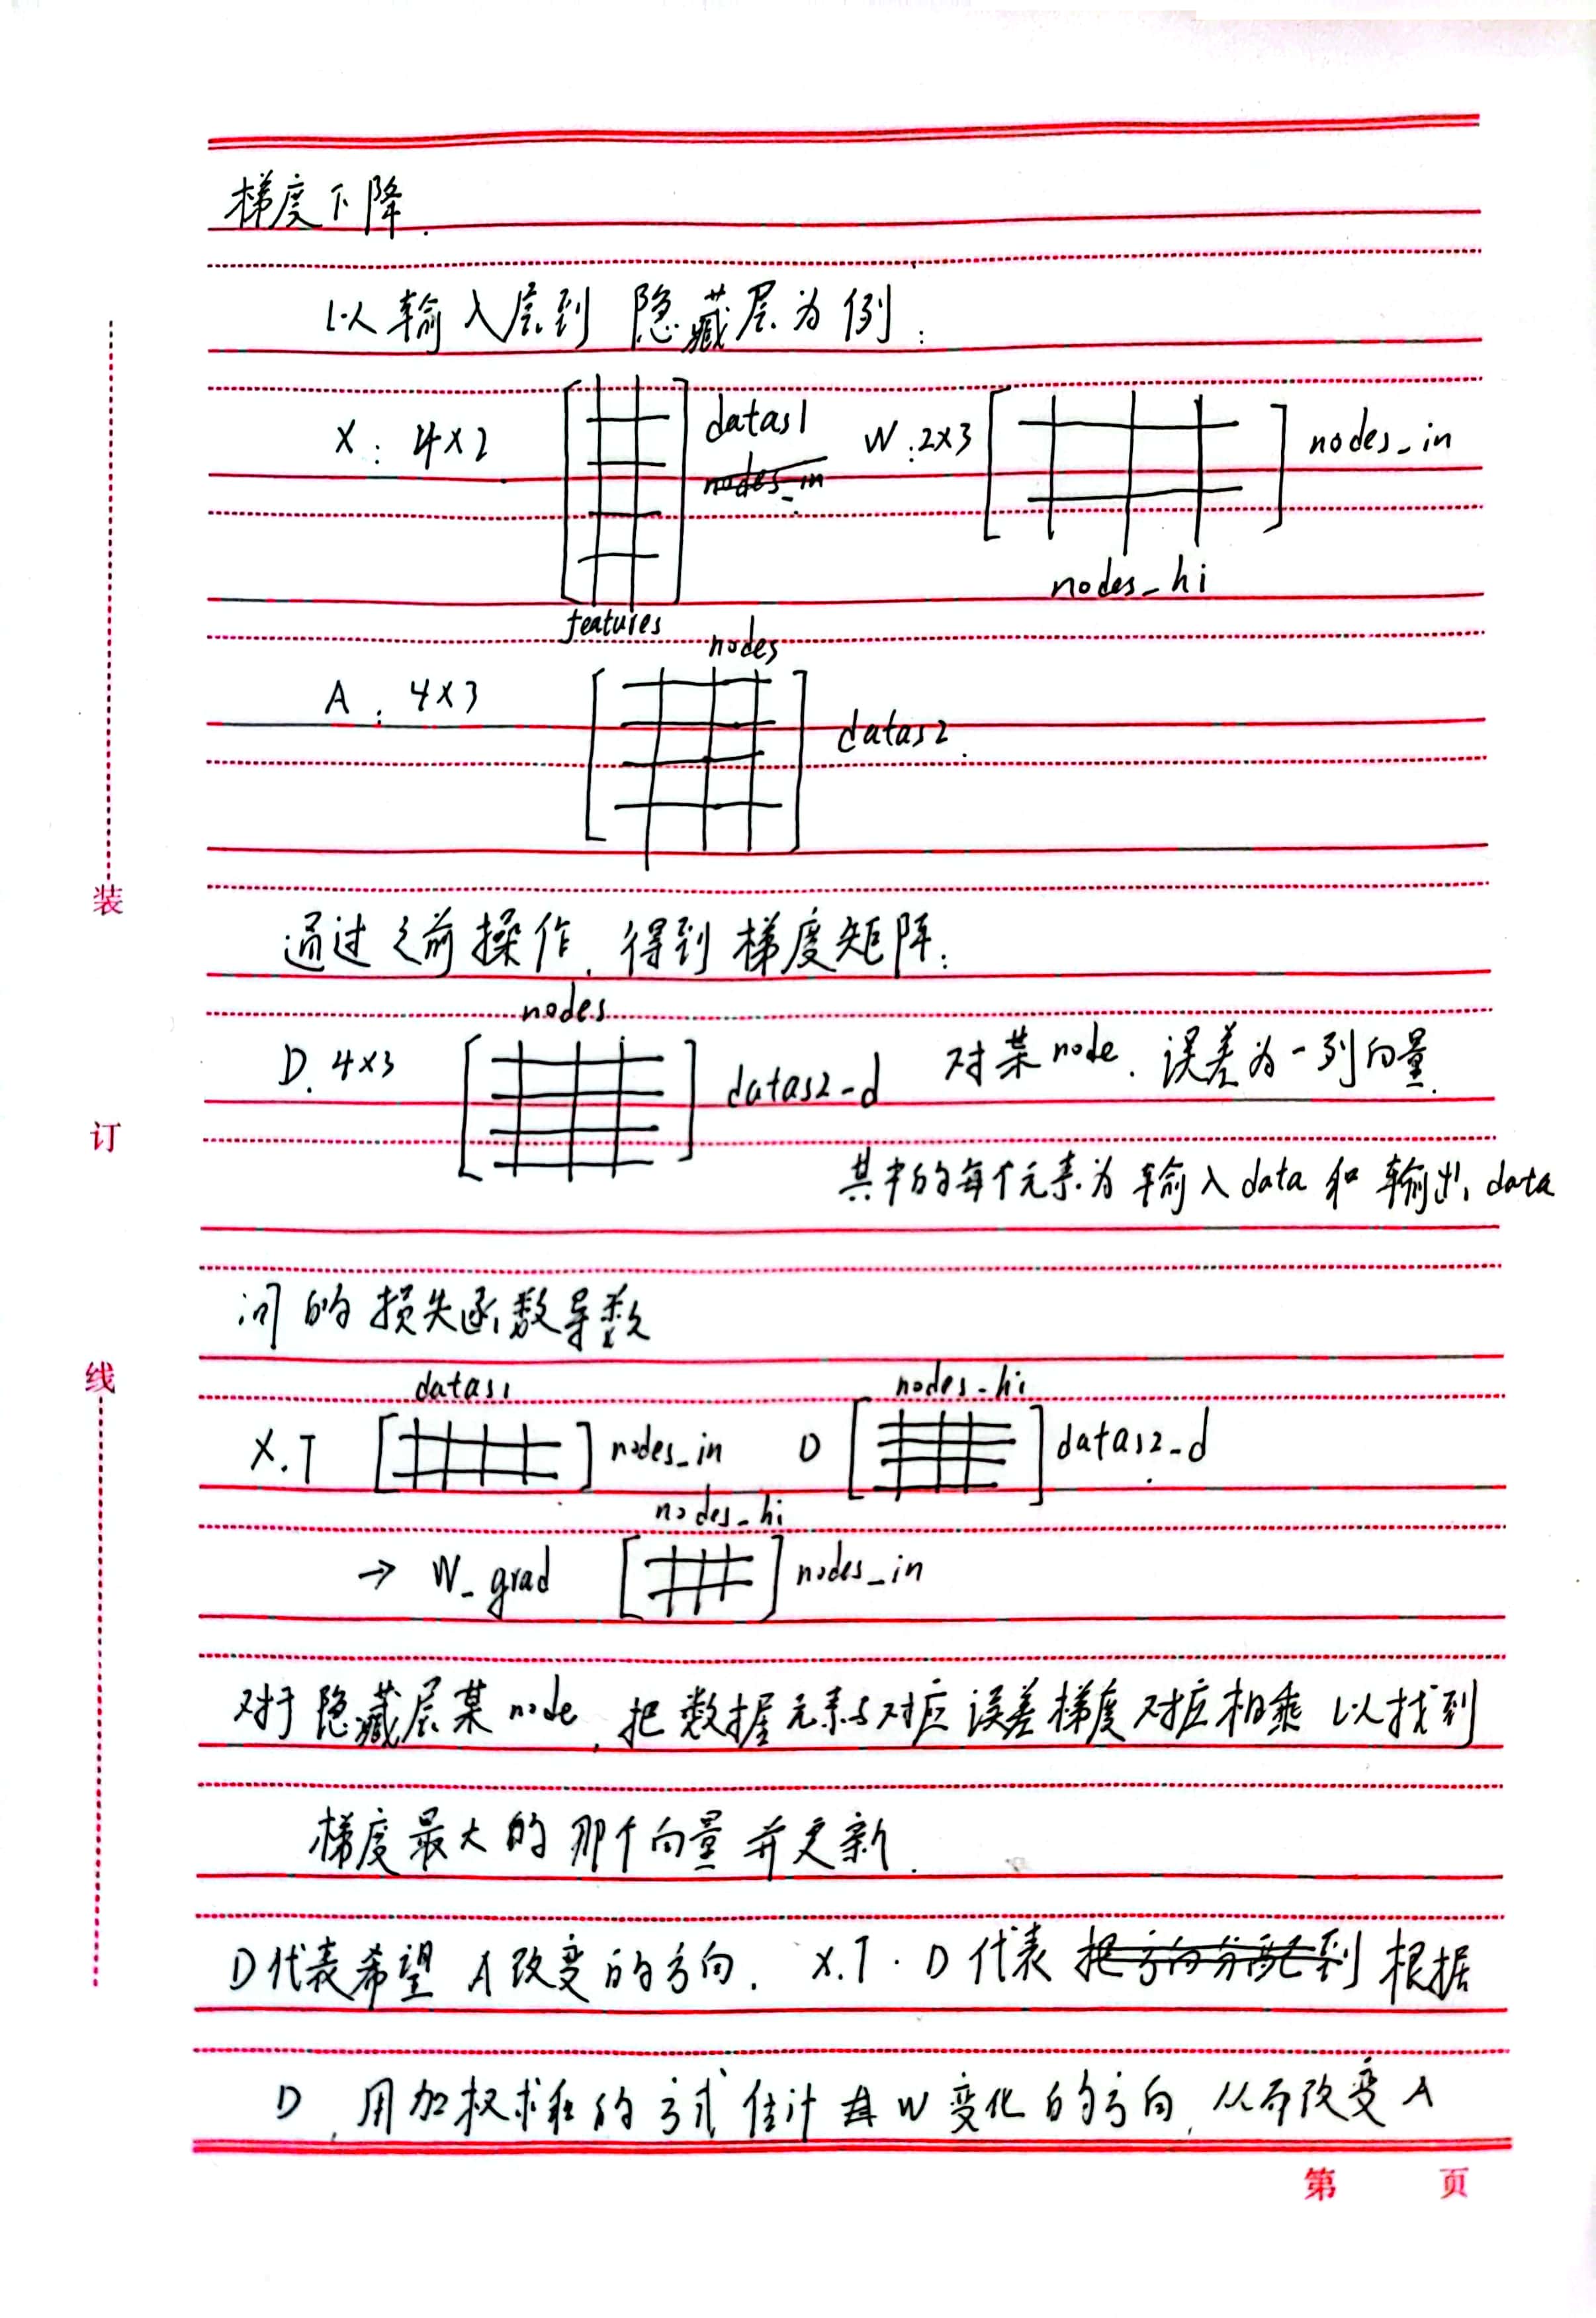 梯度下降.
以输入层到 隐藏层为例:
X: 4×2 datas1 W:2×3 nodes_in
nodes_in
nodes_hi
features
nodes
A: 4×3 datas2.
装
通过之前操作, 得到梯度矩阵:
nodes
D. 4×3 datas2-d 对某node. 误差为一列向量.
订
其中的每个元素为 输入data 和 输出data
间的损失函数导数
线
datas1 nodes-hi
X.T nodes_in D datas2-d
nodes-hi
→ W_grad nodes_in
对于隐藏层某node, 把数据元素与对应误差梯度对应相乘 以找到
梯度最大的那个向量并更新.
D代表希望 A改变的方向. X.T·D代表 把方向分配到 根据
D, 用加权求和的方式估计 W变化的方向, 从而改变A
第 页